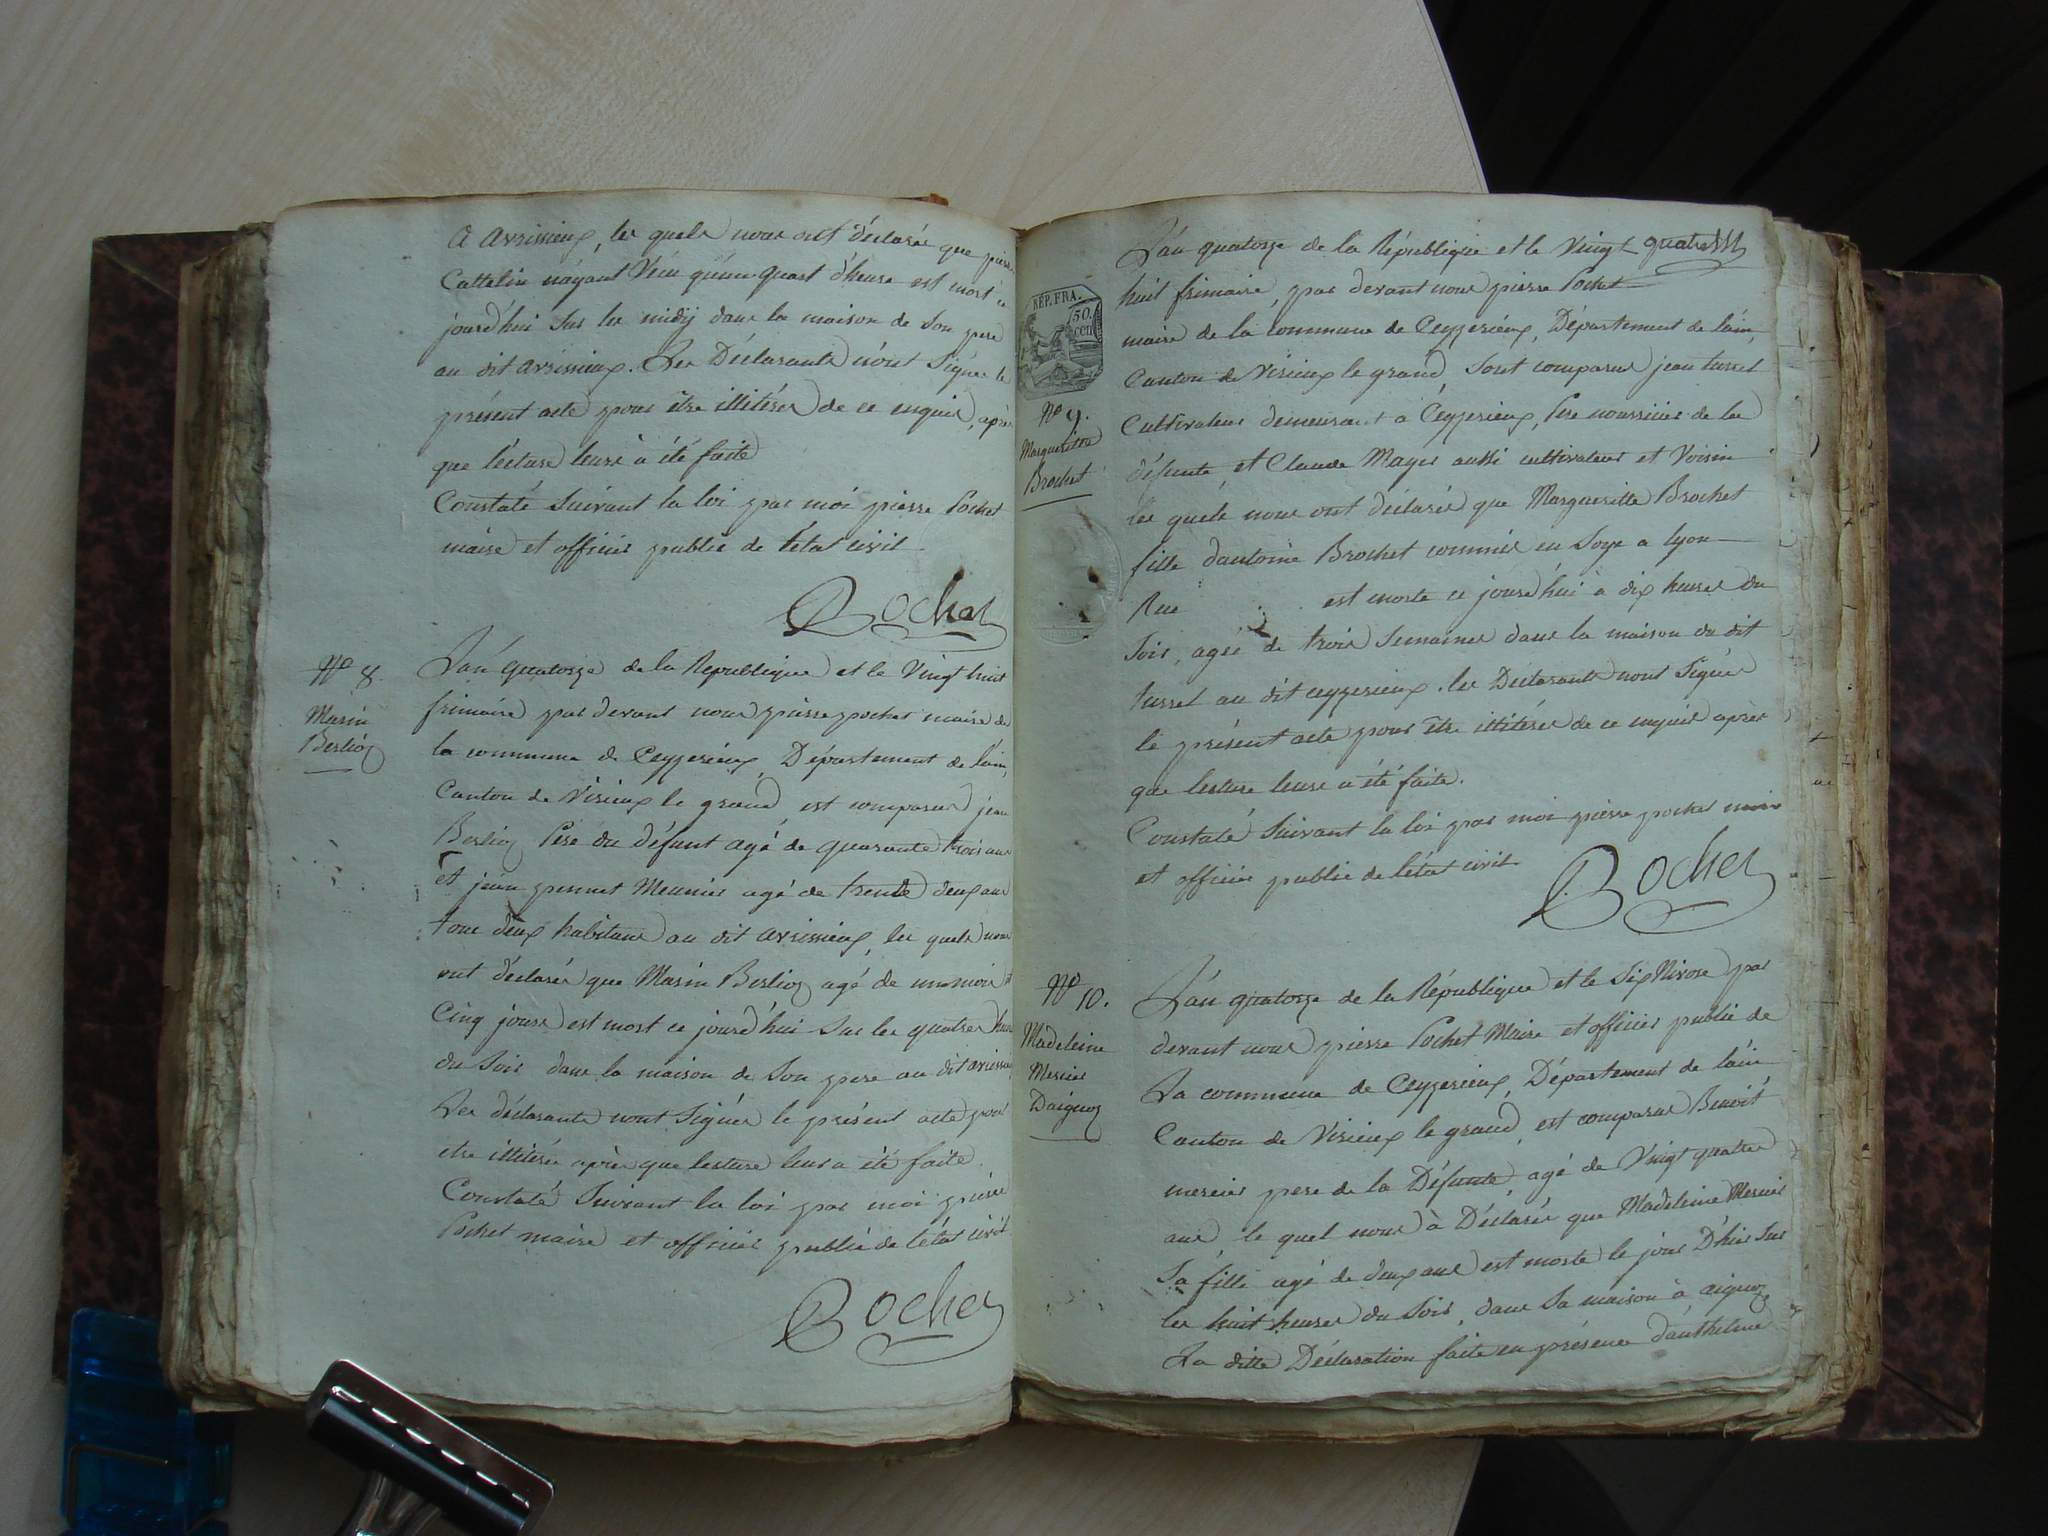 a avrissieux, les quels nous ont déclaré que pierre
Cattelin n'ayant vécu qu'un quart d'heure est mort ce
jourd'hui sur les midÿ dans la maison de son pere
au dit avrissieux. Les Déclarants n'ont signés le
présent acte pour être illitérés de ce enquis, après
que lecture leurs à été faite
Constaté suivant la loi par moi pierre Pochet
maire et officier public de l'état civil
Pochet
N° 8.
Marin
Berlioz
L'an quatorze de la République et le vingt huit
frimaire par devant nous pierre pochet maire de
la commune de Ceyzerieux, Département de l'ain,
Canton de Virieux le grand, est comparus jean
Berlioz Pere du défunt agé de quarante trois ans
et jean Meunier agé de trente deux ans
tous deux habitans au dit avrissieux, les quels nous
ont déclarés que Marin Berlioz agé de un mois et
Cinq jours est mort ce jourd'hui sur les quatres heures
du soir dans la maison de son pere au dit avrissieux
Les déclarants n'ont signés le présent acte pour
etre illitérés après que lecture leur a été faite.
Constaté suivant la loi par moi pierre
Pochet maire et officier public de l'état civil
Pochet
REP. FRA.
50.
cen
N° 9.
Margueritte
Brochet
L'an quatorze de la République et le vingt quatre
huit frimaire, par devant nous pierre Pochet
maire de la commune de Ceyzerieux, Département de l'ain,
Canton de Virieux le grand, sont comparus jean turrel
Cultivateur demeurant a Ceyzerieux, Pere nourricier de la
défunte et Claude Mayer aussi cultivateur et voisin
les quels nous ont déclarés que Margueritte Brochet
fille d'antoine Brochet commis en soye a lyon
Rue est morte ce jourd'hui à dix heures du
soir, agée de trois semaines dans la maison du dit
turrel au dit ceyzerieux. les Déclarants n'ont signés
le présent acte pour être illitérés de ce enquis après
que lecture leurs a été faite.
Constaté suivant la loi par moi pierre pochet maire
et officier public de l'état civil
Pochet
N° 10.
Madeleine
Mercier
D'aignoz
L'an quatorze de la République et le six Nivose par
devant nous pierre Pochet Maire et officier public de
La commune de Ceyzerieux, Département de l'ain
Canton de Virieux le grand, est comparus Benoit
mercier pere de la Défunte, agé de vingt quatre
ans le quel nous à Déclaré que Madeleine Mercier
sa fille agé de deux ans est morte le jour D'hier sur
les huit heures du soir, dans sa maison à aignoz
La ditte Déclaration faite en présence d'anthelme